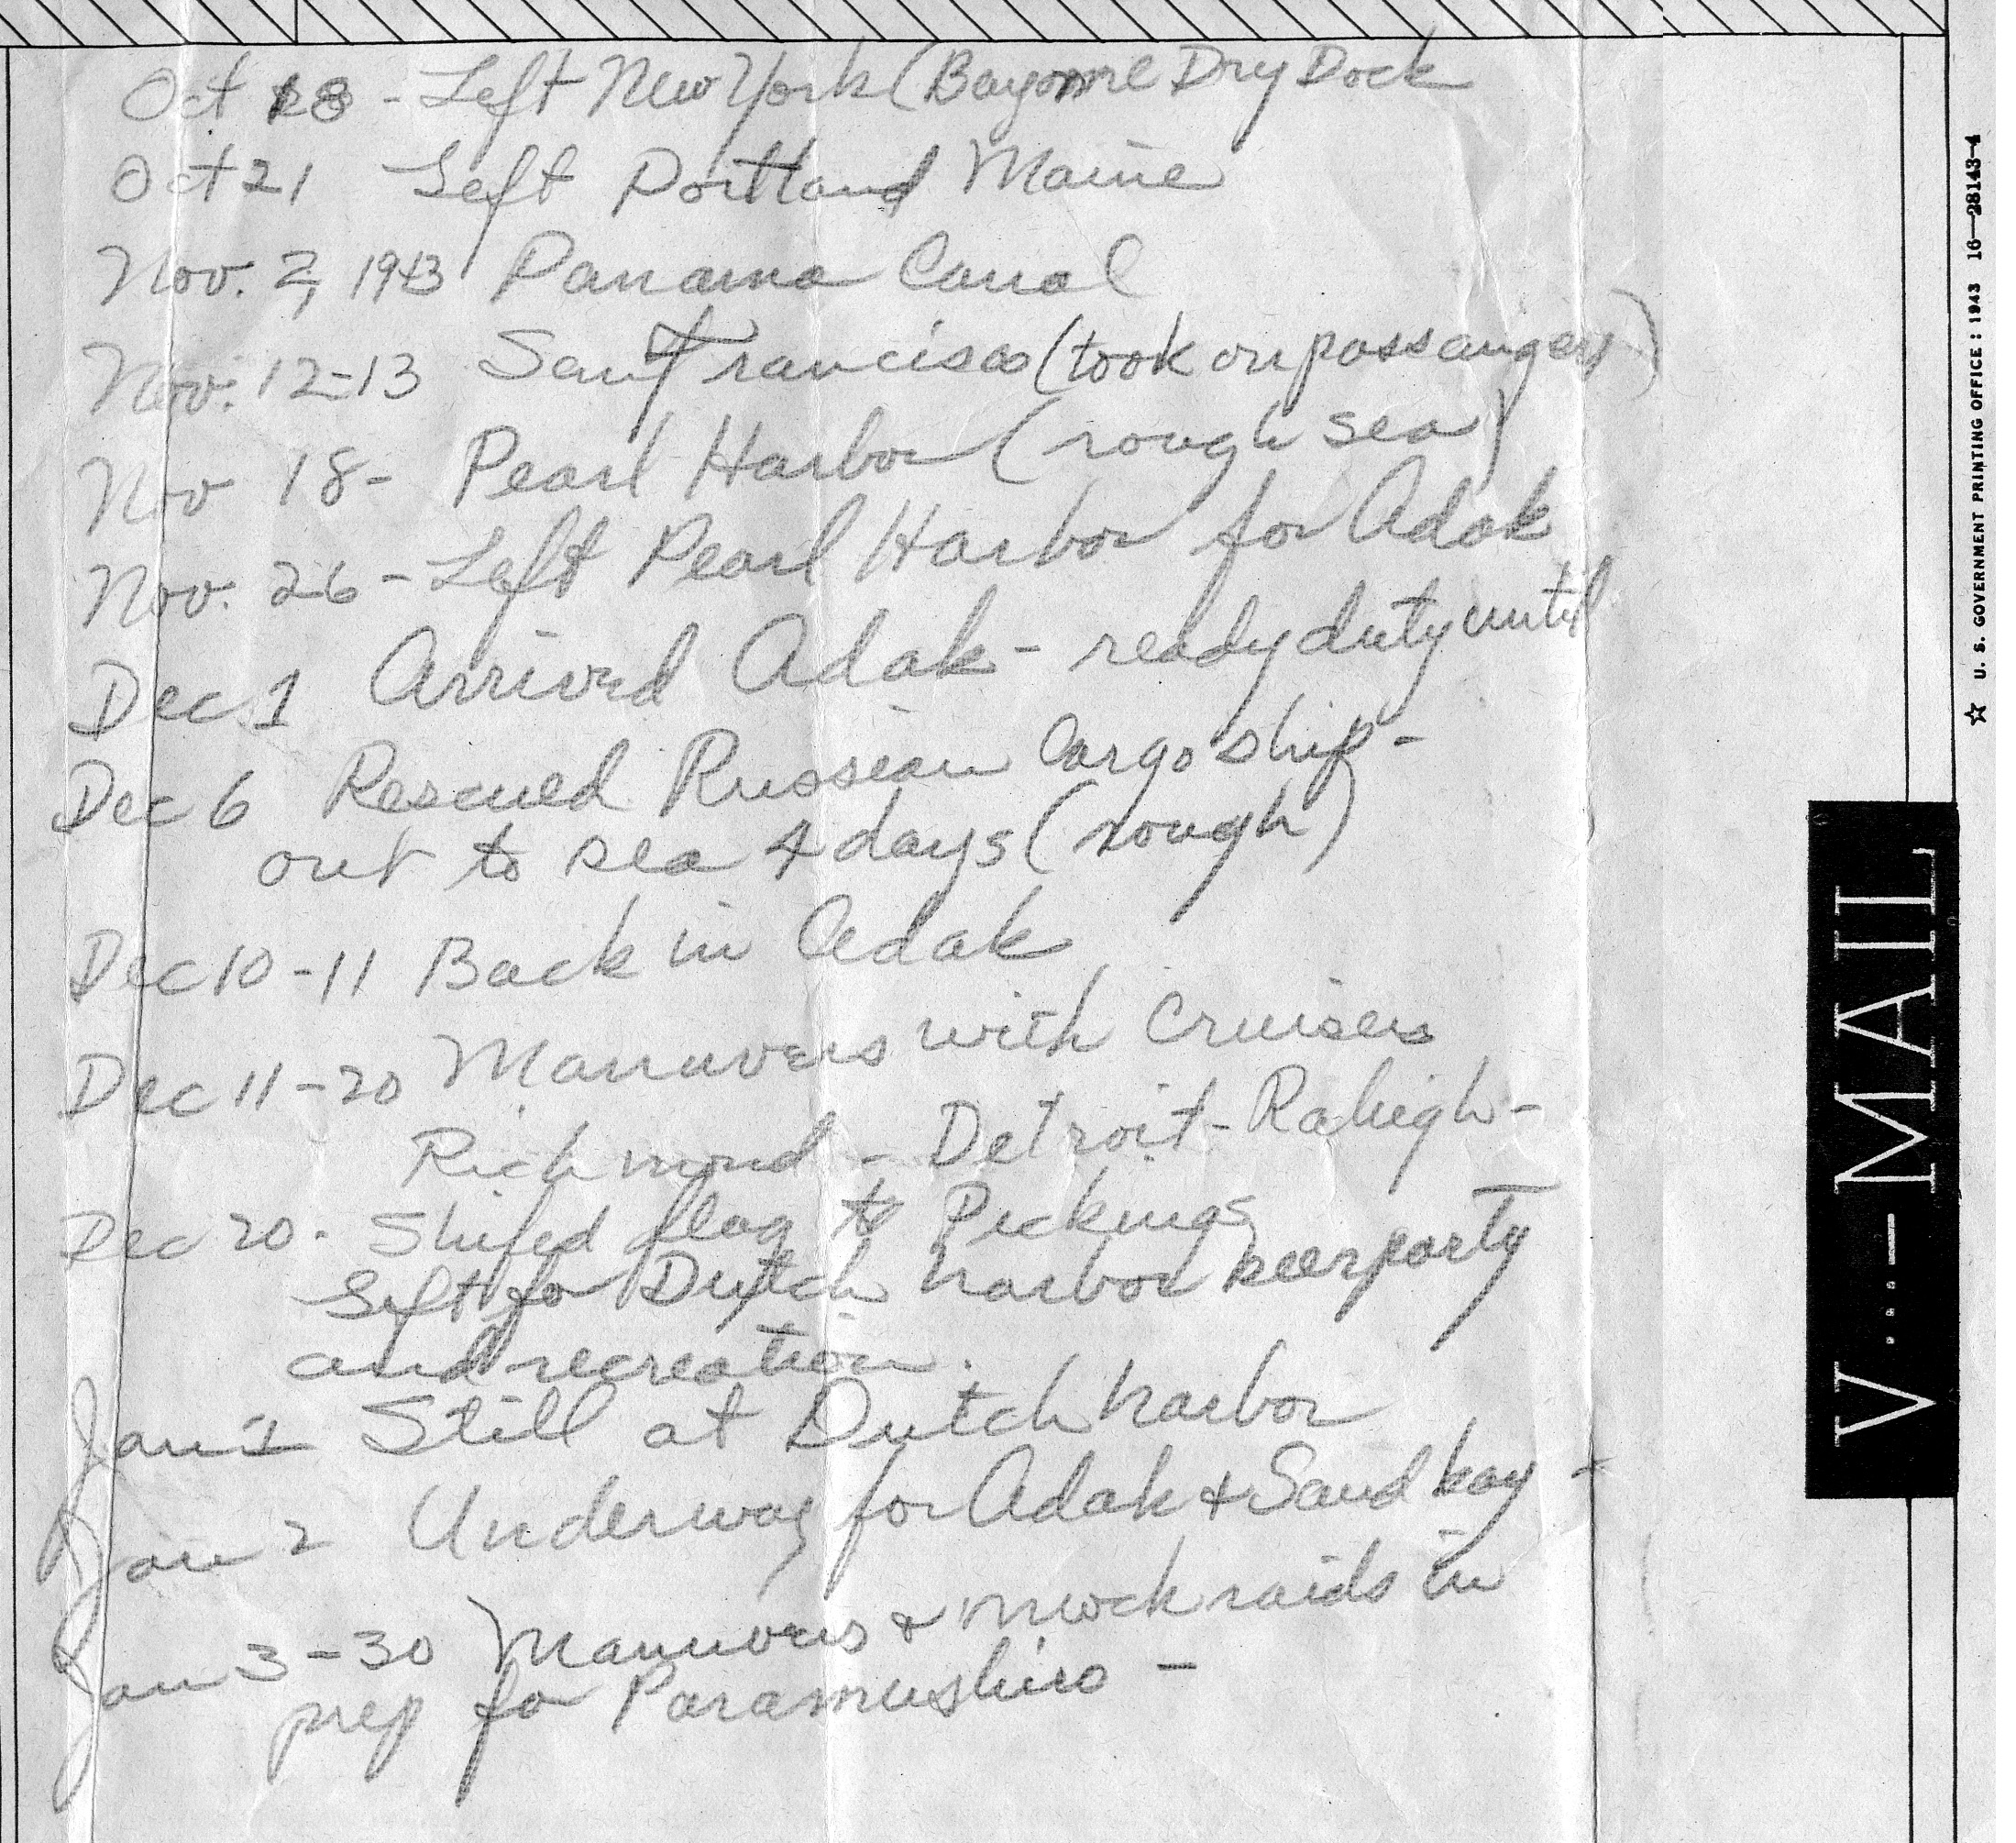 Oct 18 - Left New York (Bayonne Dry Dock
Oct 21 Left Portland Maine
Nov. 2, 1943 Panama Canal
Nov. 12-13 San Francisco (took on passangers)
Nov 18 - Pearl Harbor (rough sea)
Nov. 26 - Left Pearl Harbor for Adak
Dec 1 Arrived Adak - ready duty until
Dec 6 Rescued Russian Cargo ship -
out to sea 4 days (rough)
Dec 10-11 Back in Adak
Dec 11-20 Manuvers with Cruisers
Richmond - Detroit - Raleigh -
Dec 20. Shifed flag to Pickings
Left for Dutch harbor beer party
and recreation.
Jan 1 Still at Dutch harbor
Jan 2 Underway for Adak & Sand bay -
Jan 3-30 Manuvers & mock raids in
prep for Paramushiro -
V...-MAIL
☆ U. S. GOVERNMENT PRINTING OFFICE : 1943 16-28143-4